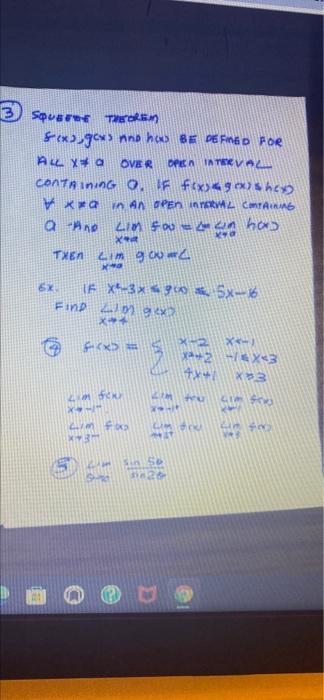 3 SQUEEZE THEOREM
f(x), g(x) AND h(x) BE DEFINED FOR
ALL X ≠ a OVER OPEN INTERVAL
CONTAINING a. IF f(x) ≤ g(x) ≤ h(x)
∀ x ≠ a IN AN OPEN INTERVAL CONTAINING
a AND LIM f(x) = L = LIM h(x)
x→a x→a
THEN LIM g(x) = L
x→a
EX. IF X²-3x ≤ g(x) ≤ 5x-16
FIND LIM g(x)
x→4
4 f(x) = { x-2 x<-1
x²+2 -1≤x<3
4x+1 x≥3
LIM f(x) LIM f(x) LIM f(x)
x→-1⁻ x→-1⁺ x→-1
LIM f(x) LIM f(x) LIM f(x)
x→3⁻ x→3⁺ x→3
5 LIM sin 5θ
sin 2θ